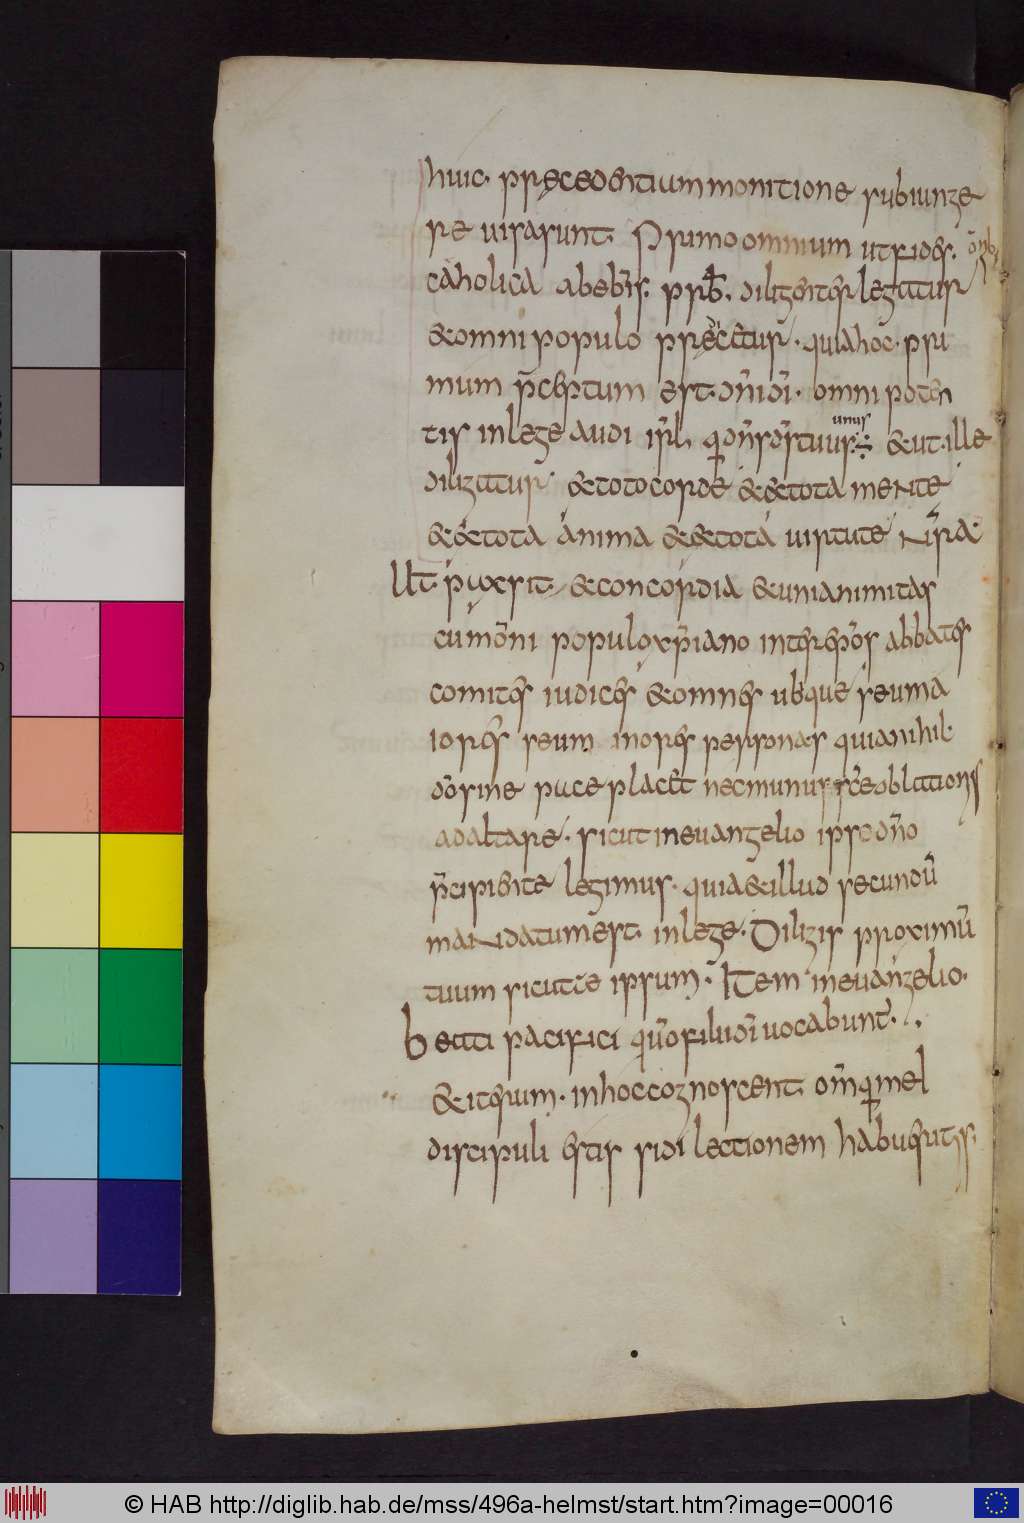 huic. pręcedentium monitione subiunge
re uisa sunt. Primo omnium ut fides.
catholica ab ep̄is. prb̄. diligenter legatur
& omni populo prędicetur. quia hoc pri
mum p̄ceptum est. dn̄i dī. omnipoten
tis in lege audi isrl̄, qd̄ dn̄s ds̄ tuus.
unus
& ut ille
diligatur & toto corde & de tota mente
& de tota anima & de tota uirtute nr̄a
Ut pax sit. & concordia & unianimitas
cum om̄i populo xp̄iano inter ep̄os abbates
comites iudices & omnes ubique seu ma
iores seu minores personas quia nihil
dō sine pace placet nec munus scē oblationis
ad altare. sicut in euangelio ipso dn̄o
p̄cipiente legimus. quia & illud secundū
mandatum est. in lege. Diliges proximū
tuum sicut te ipsum. Item in euangelio.
Beati pacifici qm̄ filii dī uocabunt̄.
& iterum. in hoc cognoscent. om̄ qd̄ mei
discipuli estis si dilectionem habueritis.
© HAB http://diglib.hab.de/mss/496a-helmst/start.htm?image=00016